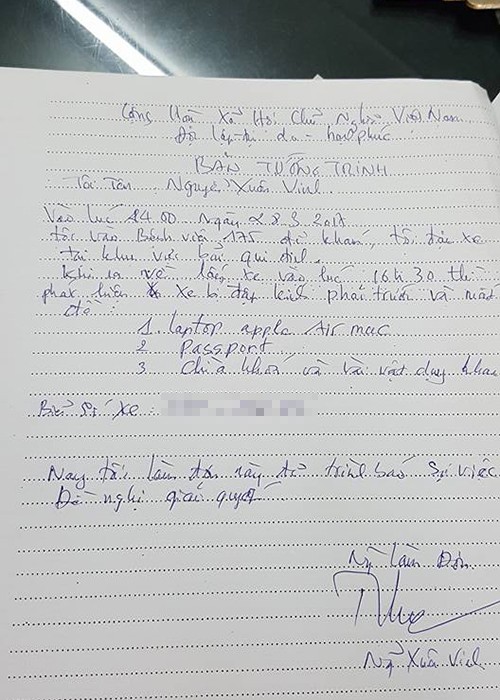 Cộng Hoà Xã Hội Chủ Nghĩa Việt Nam
Độc lập - tự do - hạnh phúc
BẢN TƯỜNG TRÌNH
Tôi Tên Nguyễn Xuân Vinh
Vào lúc 14.00 Ngày 28.3.2017
tôi vào Bệnh viện 175 để khám, tôi đậu xe
tại khu vực bãi qui định.
khi ra về lấy xe vào lúc 16h30 thì
phát hiện xe bị đập kính phải trước và mất
đồ
1. laptop apple Air mac
2 passport
3 chìa khoá và vài vật dụng khác
Biển Số Xe :
Nay tôi làm đơn này để trình báo sự việc
Đề nghị giải quyết
Ng̃ làm Đơn
Ng̃ Xuân Vinh